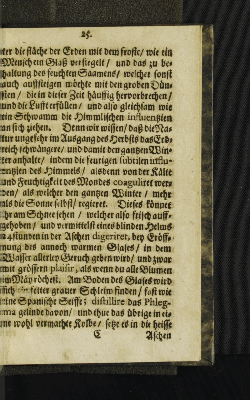 25.
ter die fläche der Erden mit dem froste/ wie ein
Mensch ein Glaß versiegelt/ und das zu be-
haltung des feuchten Saamens/ welcher sonst
auch auffsteigen möchte mit den groben Dün-
sten/ die in dieser Zeit häuffig hervorbrechen/
und die Lufft erfüllen/ und also gleichsam wie
ein Schwamm die Himmlischen influentzien
an sich ziehen. Denn wir wissen/ daß die Na-
tur ungefehr im Ausgang des Herbsts das Erd-
reich schwängere/ und damit den gantzen Win-
ter anhalte/ indem die feurigen subtilen influ-
entzien des Himmels/ als denn von der Kälte
und Feuchtigkeit des Mondes coaguliert wer-
den/ als welcher den gantzen Winter/ mehr
als die Sonne selbst/ regieret. Dieses könnet
ihr am Schnee sehen/ welcher also frisch auff-
gehoben/ und vermittelst eines blinden Helms
in der Aschen digeriret, bey Eröff-
nung des annoch warmen Glases/ in dem
Wasser allerley Geruch geben wird/ und zwar
mit grössern plaisir, als wenn du alle Blumen
im Mäy röchest. Am Boden des Glases wird
sich ein fetter grauer Schleim finden/ fast wie
eine Spanische Seiffe; distillire das Phleg-
ma gelinde davon/ und thue das übrige in ei-
ne wohl vermachte Kolbe/ setze es in die heisse
C Aschen